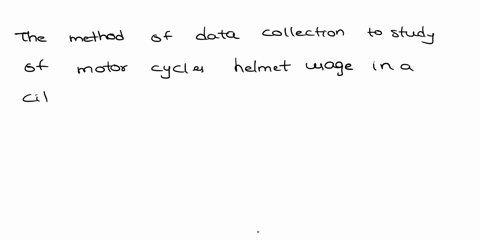 The method of data collection to study
of motor cycles helmet usage in a
cil